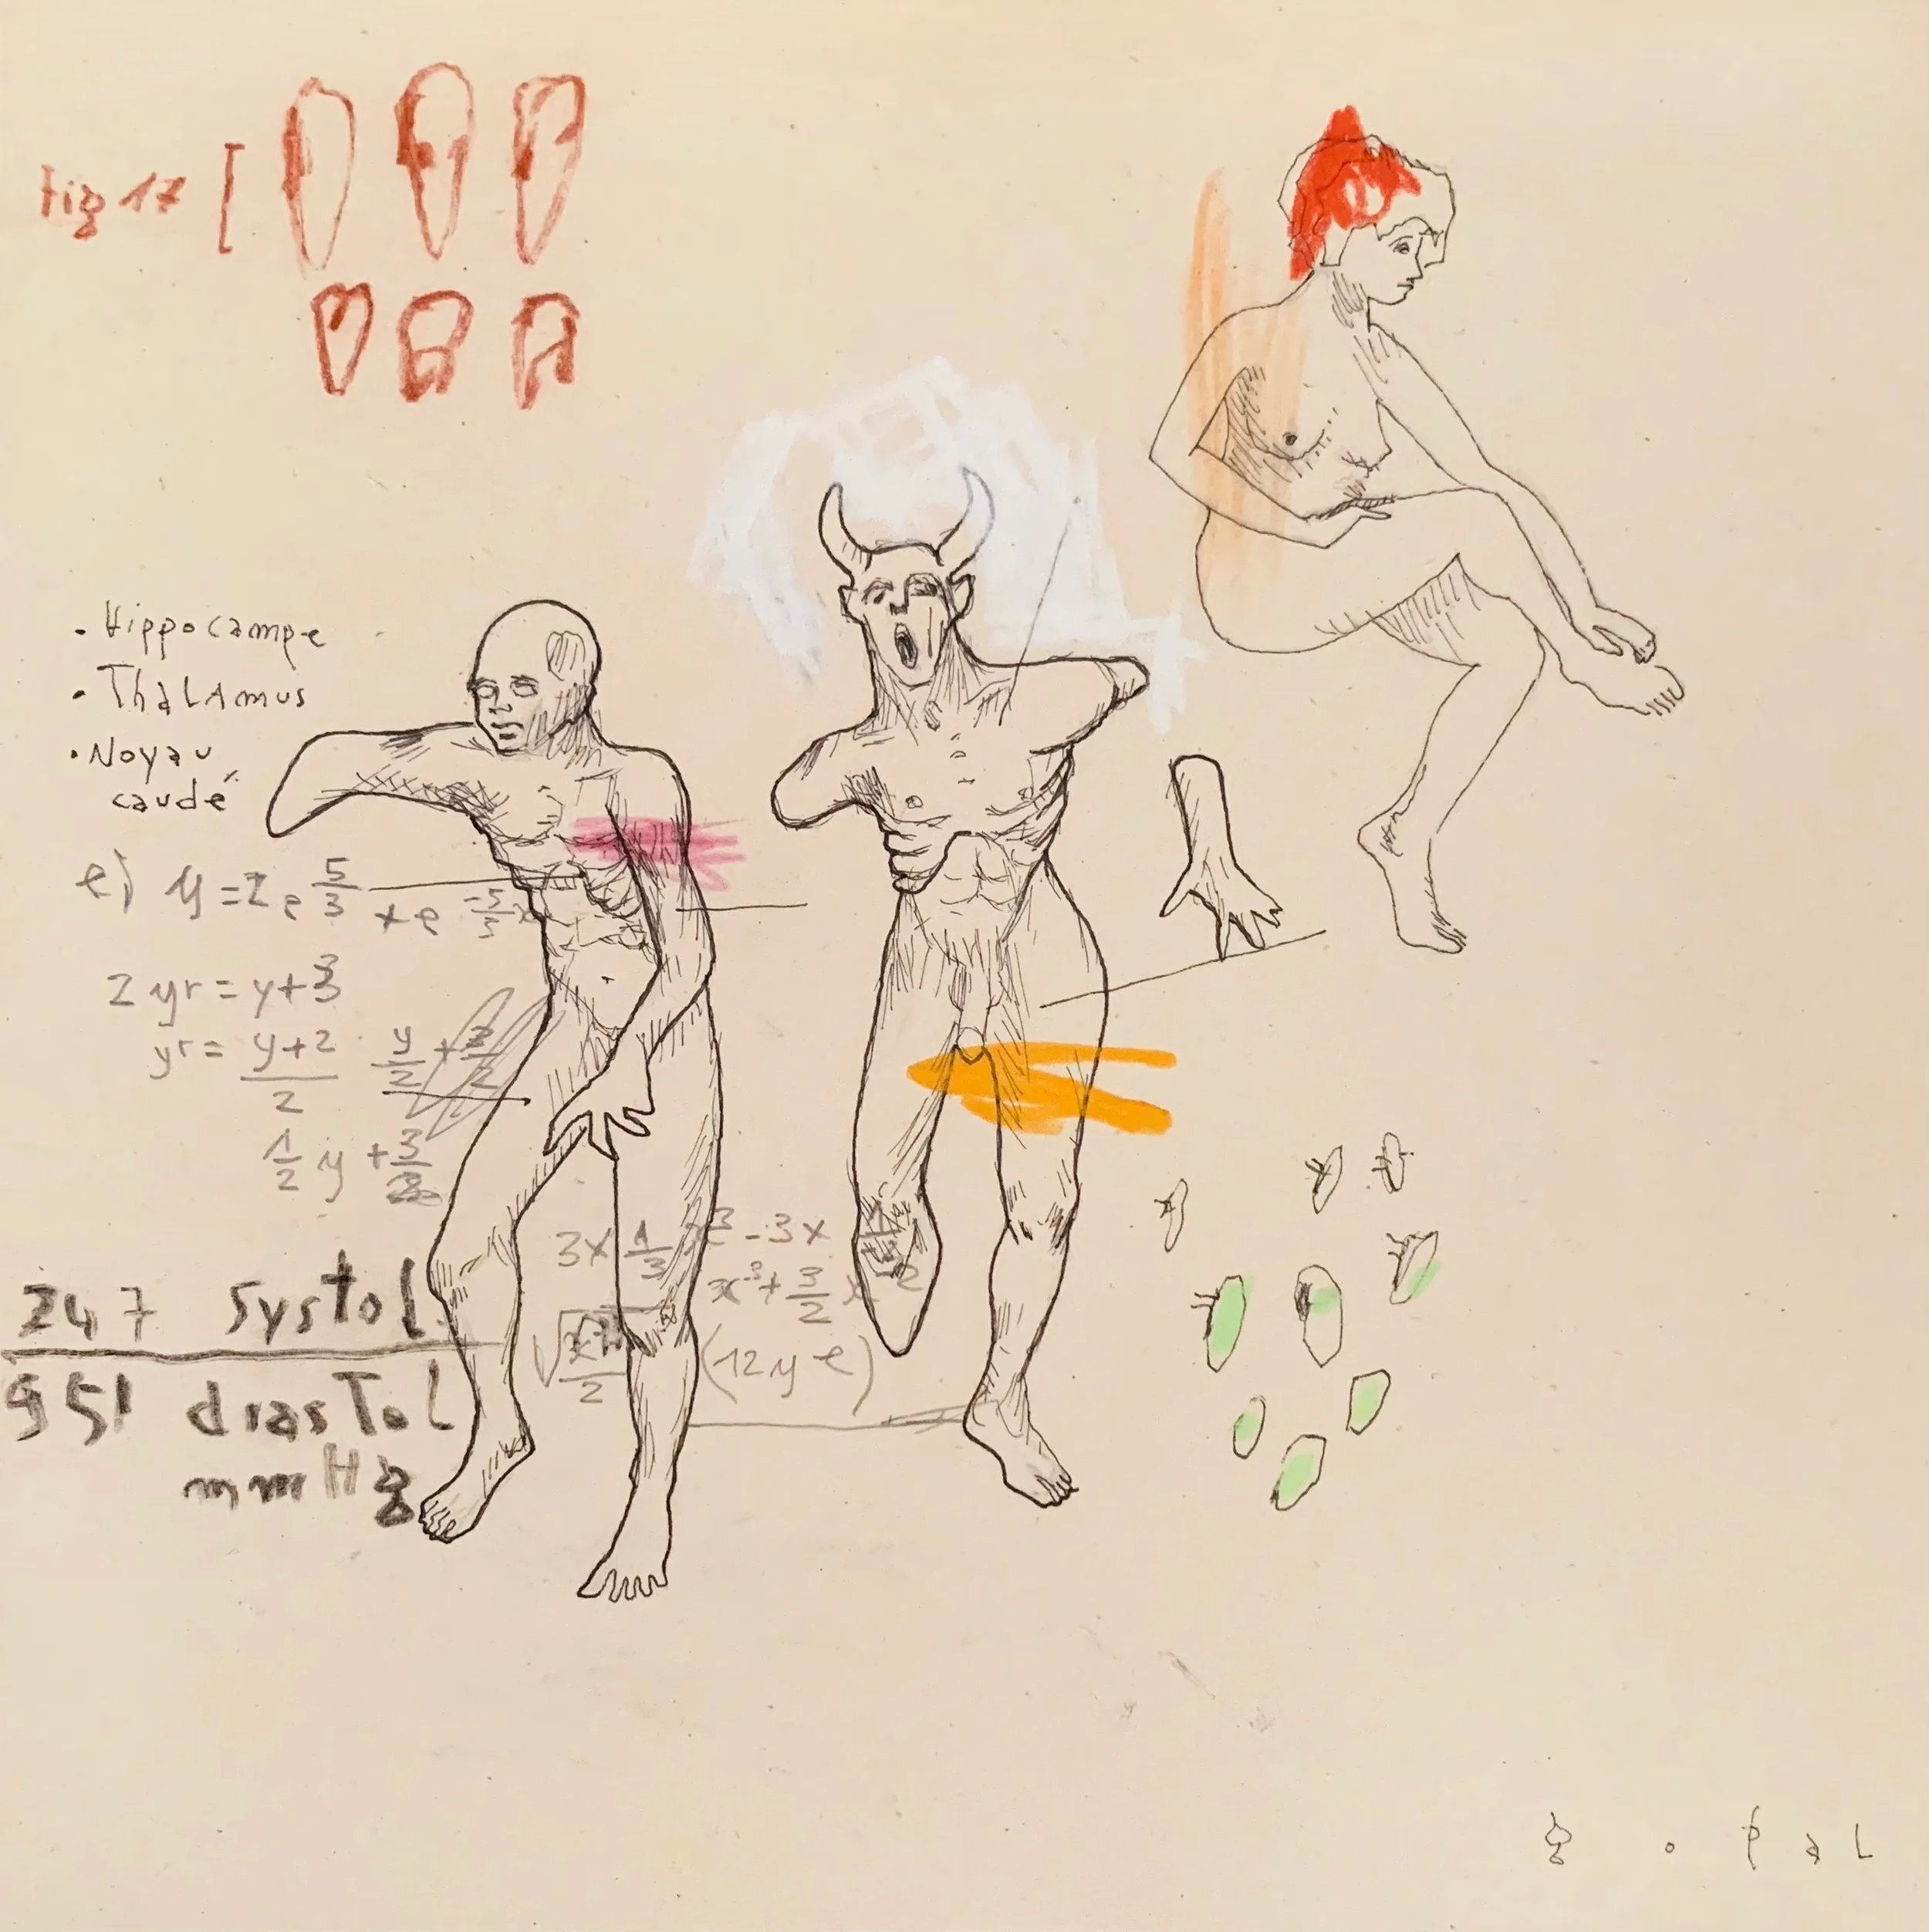 Fig 17
. Hippocampe
. Thalamus
. Noyau
caudé
e) y = 2 e 5/3 x e -5/3 x
2 yr = y+3
yr = y+2 / 2   y/2 + 3/2
1/2 y + 3/2
3x 1/3 x³ - 3x
x³ + 3/2 x
(12 y e)
247 systol
951 diastol
mmHg
g o p a L